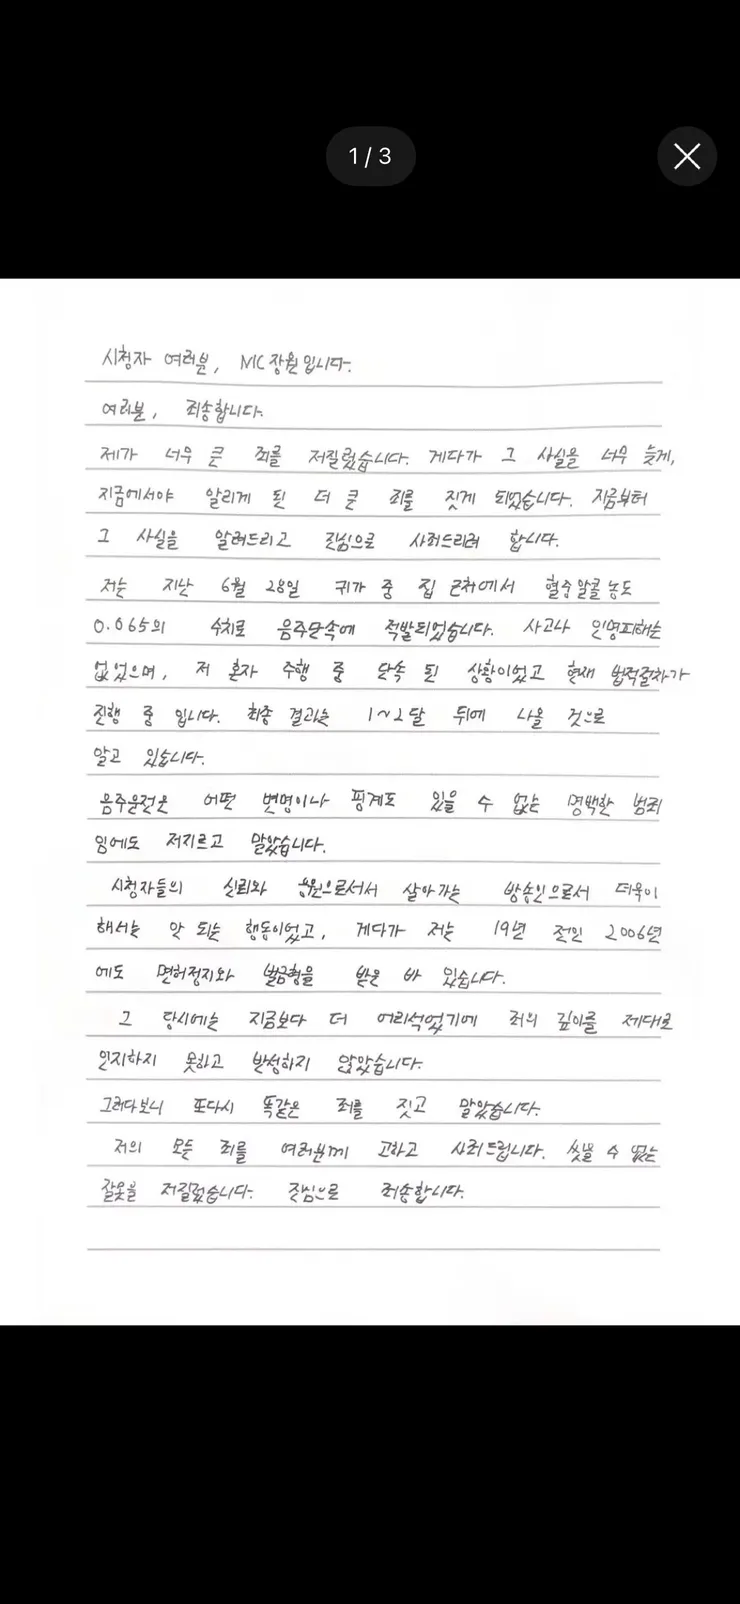 1 / 3
시청자 여러분, MC장원입니다.
여러분, 죄송합니다.
제가 너무 큰 죄를 저질렀습니다. 게다가 그 사실을 너무 늦게,
지금에서야 알리게 된 더 큰 죄를 짓게 되었습니다. 지금부터
그 사실을 알려드리고 진심으로 사죄드리려 합니다.
저는 지난 6월 28일 귀가 중 집 근처에서 혈중알콜농도
0.065의 수치로 음주단속에 적발되었습니다. 사고나 인명피해는
없었으며, 저 혼자 주행 중 단속 된 상황이었고 현재 법적절차가
진행 중 입니다. 최종 결과는 1~2달 뒤에 나올 것으로
알고 있습니다.
음주운전은 어떤 변명이나 핑계도 있을 수 없는 명백한 범죄
임에도 저지르고 말았습니다.
시청자들의 신뢰와 응원으로서서 살아가는 방송인으로서 더욱이
해서는 안 되는 행동이었고, 게다가 저는 19년 전인 2006년
에도 면허정지와 벌금형을 받은 바 있습니다.
그 당시에는 지금보다 더 어리석었기에 죄의 깊이를 제대로
인지하지 못하고 반성하지 않았습니다.
그러다보니 또다시 똑같은 죄를 짓고 말았습니다.
저의 모든 죄를 여러분께 고하고 사죄드립니다. 씻을 수 없는
잘못을 저질렀습니다. 진심으로 죄송합니다.